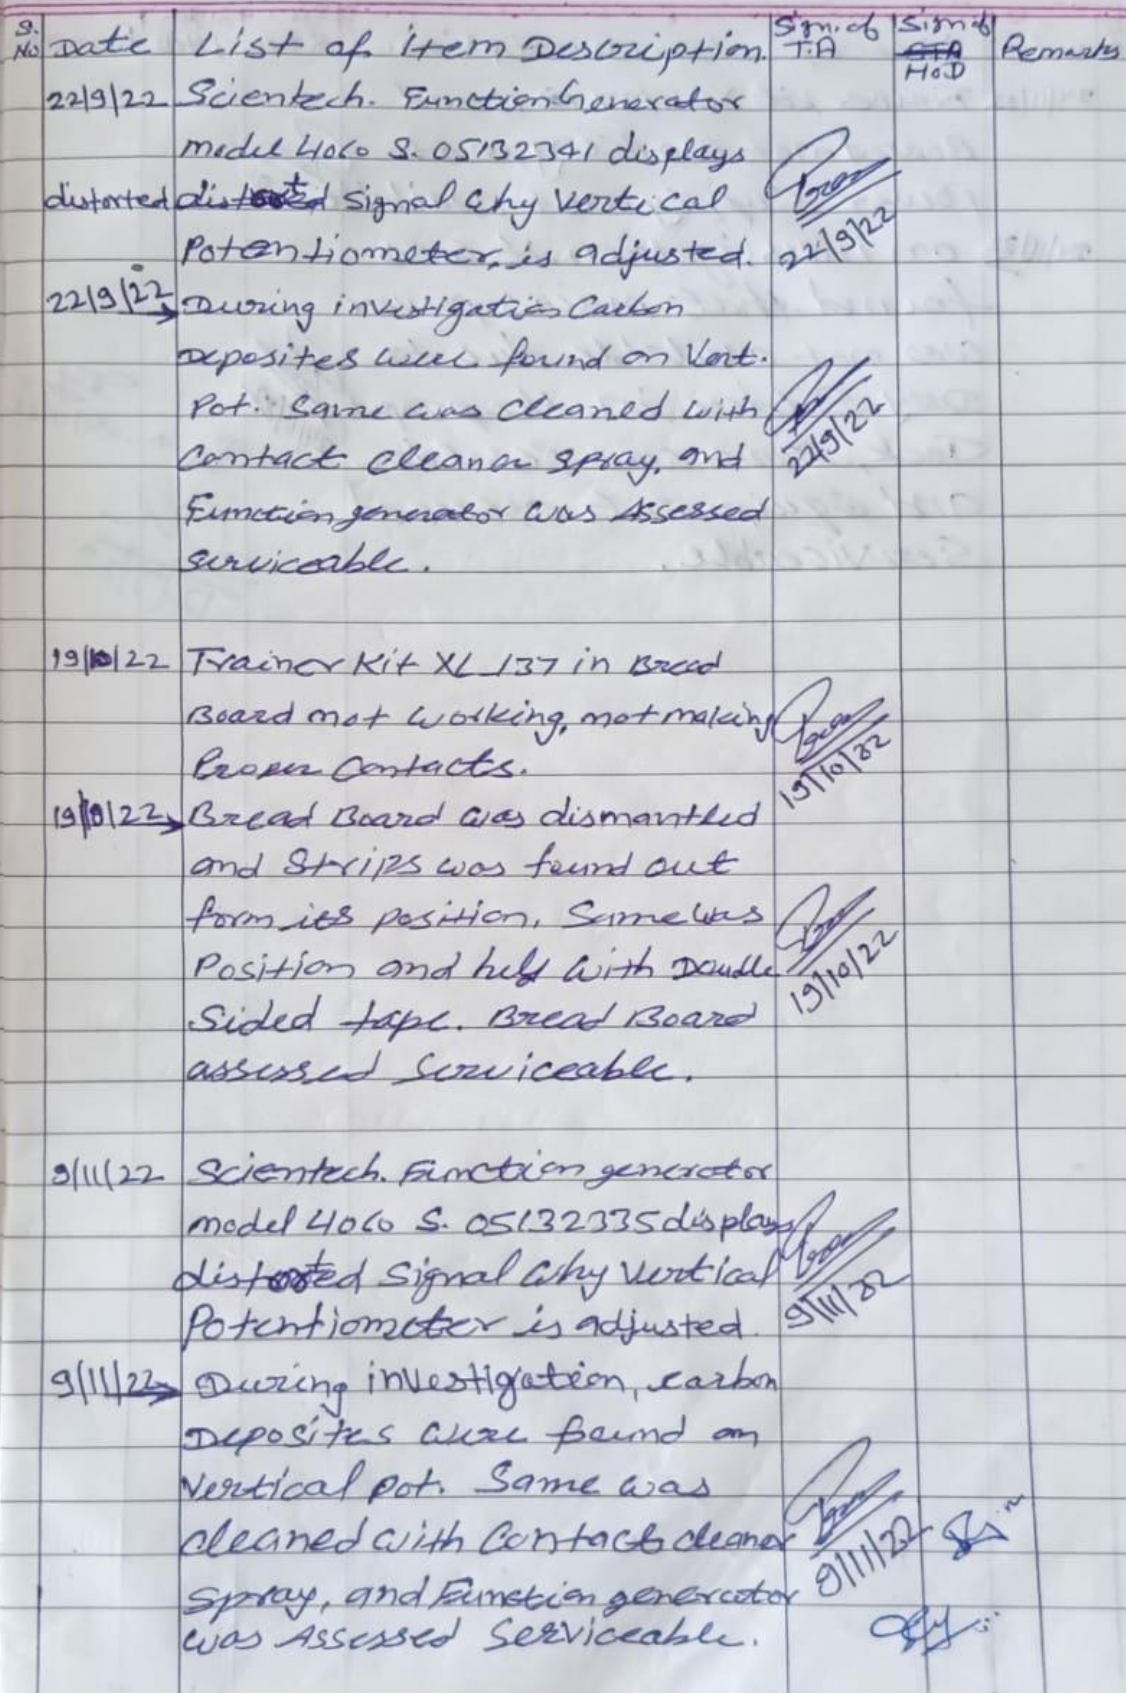 S. No Date List of item Description. Sign. of T.A Sign of STA HoD Remarks
22/9/22 Scientech. Function Generator
model 4060 S. 05132341 displays
distorted distorted Signal Why Vertical
Potentiometer, is adjusted. 22/9/22
22/9/22 → During investigation Carbon
Deposites were found on Vert.
Pot. Same was cleaned with
Contact cleaner spray, and 22/9/22
Function generator was Assessed
serviceable.
19/10/22 Trainer Kit XL_137 in Bread
Board not working, not making
Proper Contacts. 19/10/22
19/10/22 → Bread Board was dismantled
and Strips was found out
form its position. Same was
Position and held with Double
Sided tape. Bread Board 19/10/22
assessed Serviceable.
9/11/22 Scientech. Function generator
model 4060 S. 05132335 displays
distorted Signal Why Vertical
Potentiometer is adjusted. 9/11/22
9/11/22 → During investigation, carbon
Deposites were found on
Vertical pot. Same was
cleaned with Contact cleaner
Spray, and Function generator 9/11/22
was Assessed Serviceable.